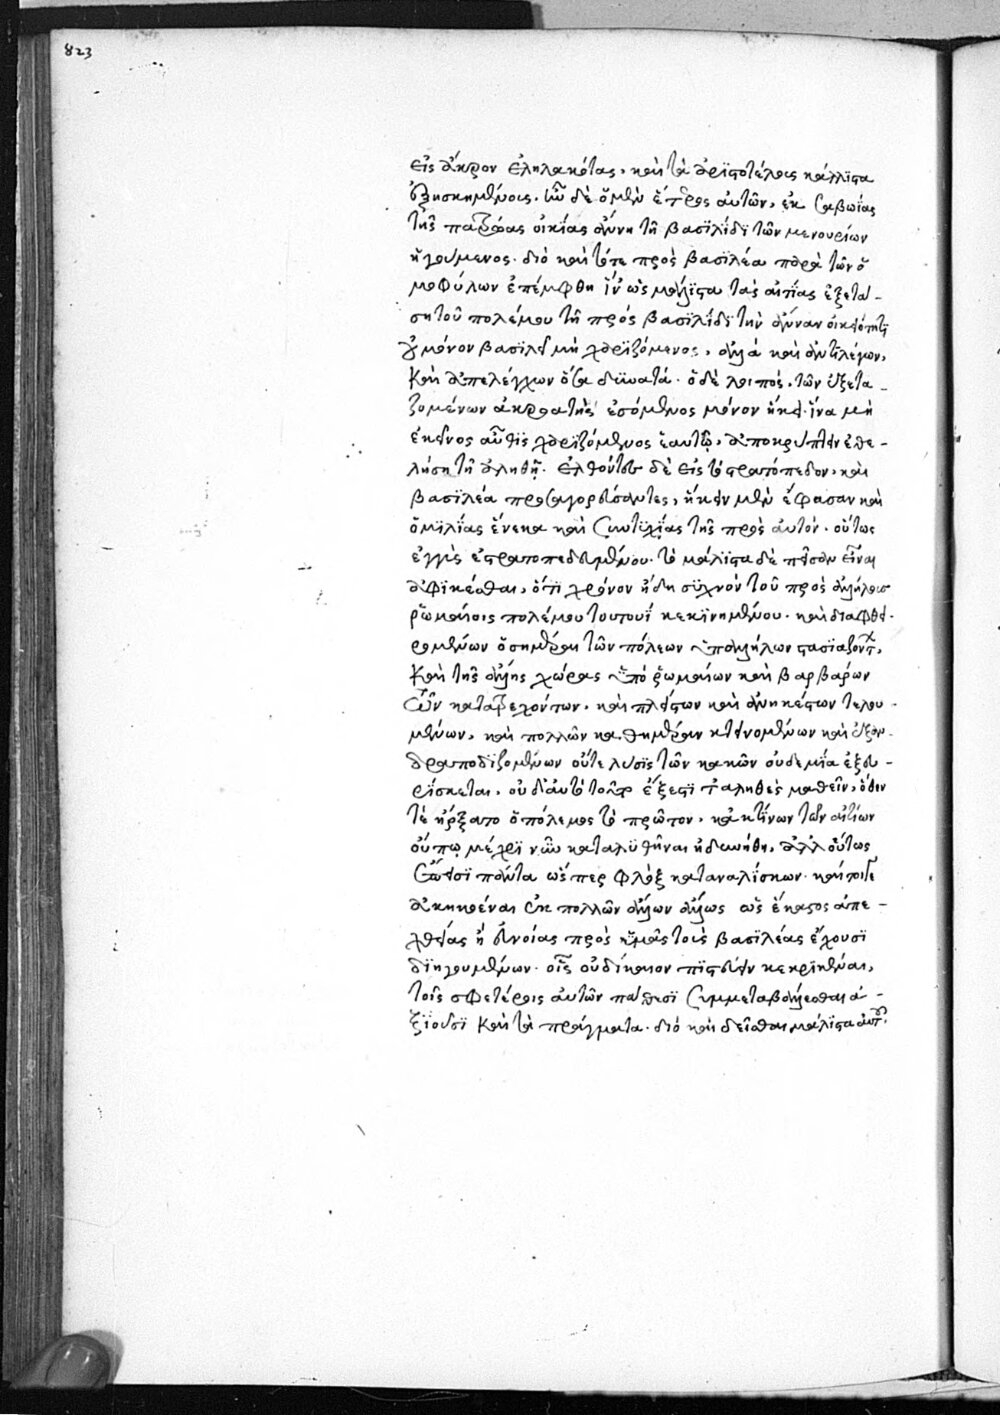 823
εἰς ἄκρον ἐληλακότας, καὶ τὰ ἀριστοτέλους κάλλιστα
ἐξησκημένοις. ὧν δὲ ὁ μὲν ἕτερος αὐτῶν, ἐκ σαβωΐας
τῆς πατρώας οἰκίας ἄννῃ τῇ βασιλίδι τῶν μενουρίων
ἡγούμενος. διὸ καὶ τότε πρὸς βασιλέα παρὰ τῶν ὁ
μοφύλων ἐπέμφθη ἵν' ὡς μάλιστα τὰς αἰτίας ἐξετα-
σῃ τοῦ πολέμου τῇ πρὸς βασιλίδι τὴν ἄνναν οἰκειότητι
οὐ μόνον βασιλεῖ μὴ χαριζόμενος, ἀλλὰ καὶ ἀντιλέγων,
καὶ ἀπελέγχων ὅσα δυνατά. ὁ δὲ λοιπὸς, τῶν ἐξετα-
ζομένων ἀκροατὴς ἐσόμενος μόνον ἧκει. ἵνα μὴ
ἐκεῖνος αὖθις χαριζόμενος ἑαυτῷ, ἀποκρύπτειν ἐθε-
λήσῃ τἀληθῆ. ἐλθόντες δὲ εἰς τὸ στρατόπεδον, καὶ
βασιλέα προσαγορεύσαντες, ἥκειν μὲν ἔφασαν καὶ
ὁμιλίας ἕνεκα καὶ συντυχίας τῆς πρὸς αὐτόν. οὕτως
ἐγγὺς ἐστρατοπεδευμένου. τὸ μάλιστα δὲ πεῖσαν εἶναι
ἀφικέσθαι, ὅτι χρόνον ἤδη συχνὸν τοῦ πρὸς ἀλλήλους
ῥωμαίοις πολέμου τουτουΐ κεκινημένου. καὶ διαφθει-
ρομένων ὁσημέραι τῶν πόλεων ὑπ' ἀλλήλων στασιαζόντων,
καὶ τῆς ἄλλης χώρας ὑπὸ ῥωμαίων καὶ βαρβάρων
τῶν κατατρεχόντων, καὶ πλείστων καὶ ἀνηκέστων τελου-
μένων, καὶ πολλῶν καθημέραν κτεινομένων καὶ ἐξαν-
δραποδιζομένων οὔτε λύσις τῶν κακῶν οὐδεμία ἐξευ-
ρίσκεται, οὐδ' αὐτὸ τοῦτο ἔξεστι τἀληθὲς μαθεῖν, ὅθεν
τὲ ἤρξατο ὁ πόλεμος τὸ πρῶτον, κἀκ τίνων τῶν αἰτίων
οὔπω μέχρι νῦν καταλυθῆναι ἠδυνήθη, ἀλλ' οὕτως
ἔπεισι πάντα ὥσπερ φλὸξ καταναλίσκων. καίτοιγε
ἀκηκοέναι ἐκ πολλῶν ἄλλων ἄλλως ὡς ἕκαστος ἀπε-
χθείας ἢ εὐνοίας πρὸς ὑμᾶς τοὺς βασιλέας ἔχουσι
διηγουμένων. οἷς οὐ δίκαιον πιστεύειν κεκρίκέναι,
τοῖς σφετέροις αὐτῶν πάθεσι συμμεταβάλλεσθαι ἀ-
ξιοῦσι καὶ τὰ πράγματα. διὸ καὶ δεῖσθαι μάλιστα αὐτοῦ,